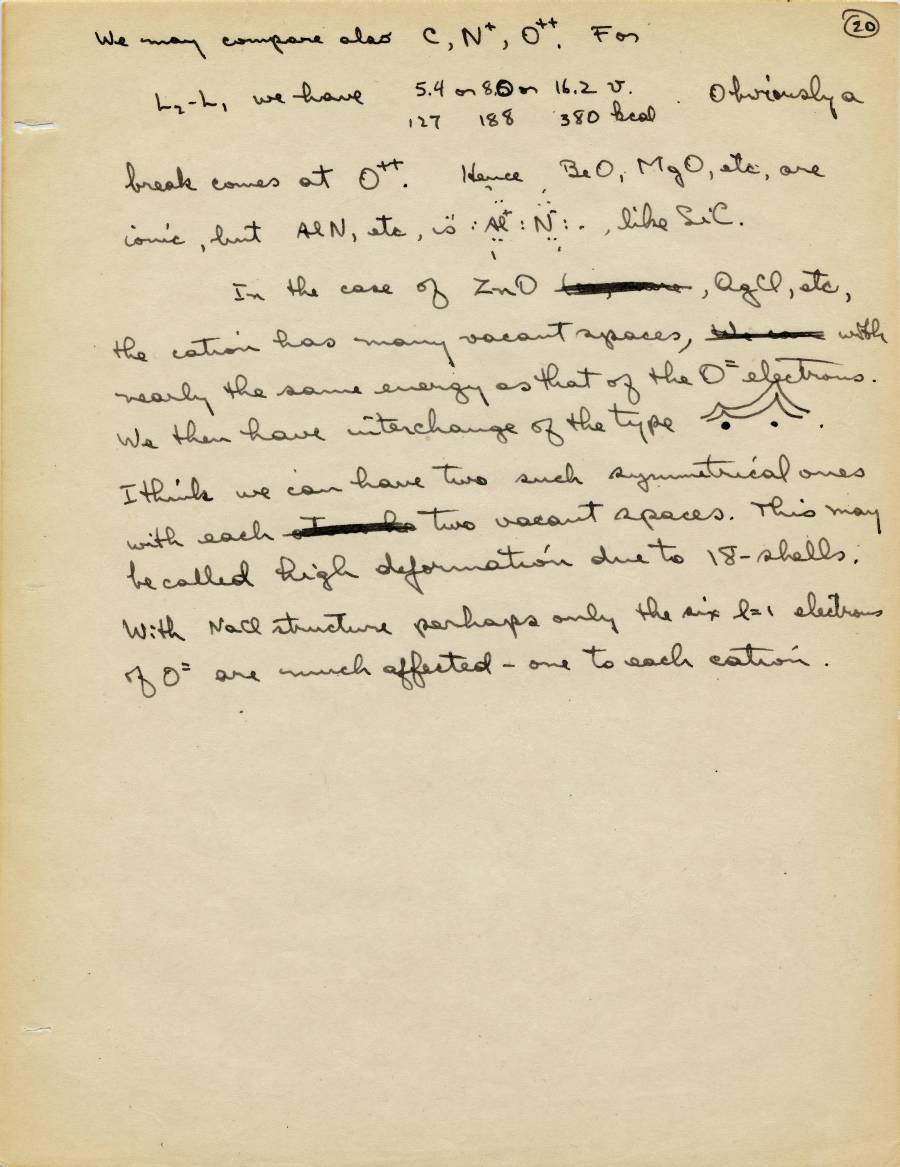 20
We may compare also C, N⁺, O⁺⁺. For
L₂-L₁ we have 5.4 or 8.0 or 16.2 v. Obviously a
127 188 380 kcal
break comes at O⁺⁺. Hence BeO, MgO, etc, are
ionic, but AlN, etc, is :Al⁺:N⁻:. , like SiC.
In the case of ZnO , AgCl, etc,
the cation has many vacant spaces, with
nearly the same energy as that of the O⁼ electrons.
We then have interchange of the type .
I think we can have two such symmetrical ones
with each two vacant spaces. This may
be called high deformation due to 18-shells.
With NaCl structure perhaps only the six l=1 electrons
of O⁼ are much affected - one to each cation.